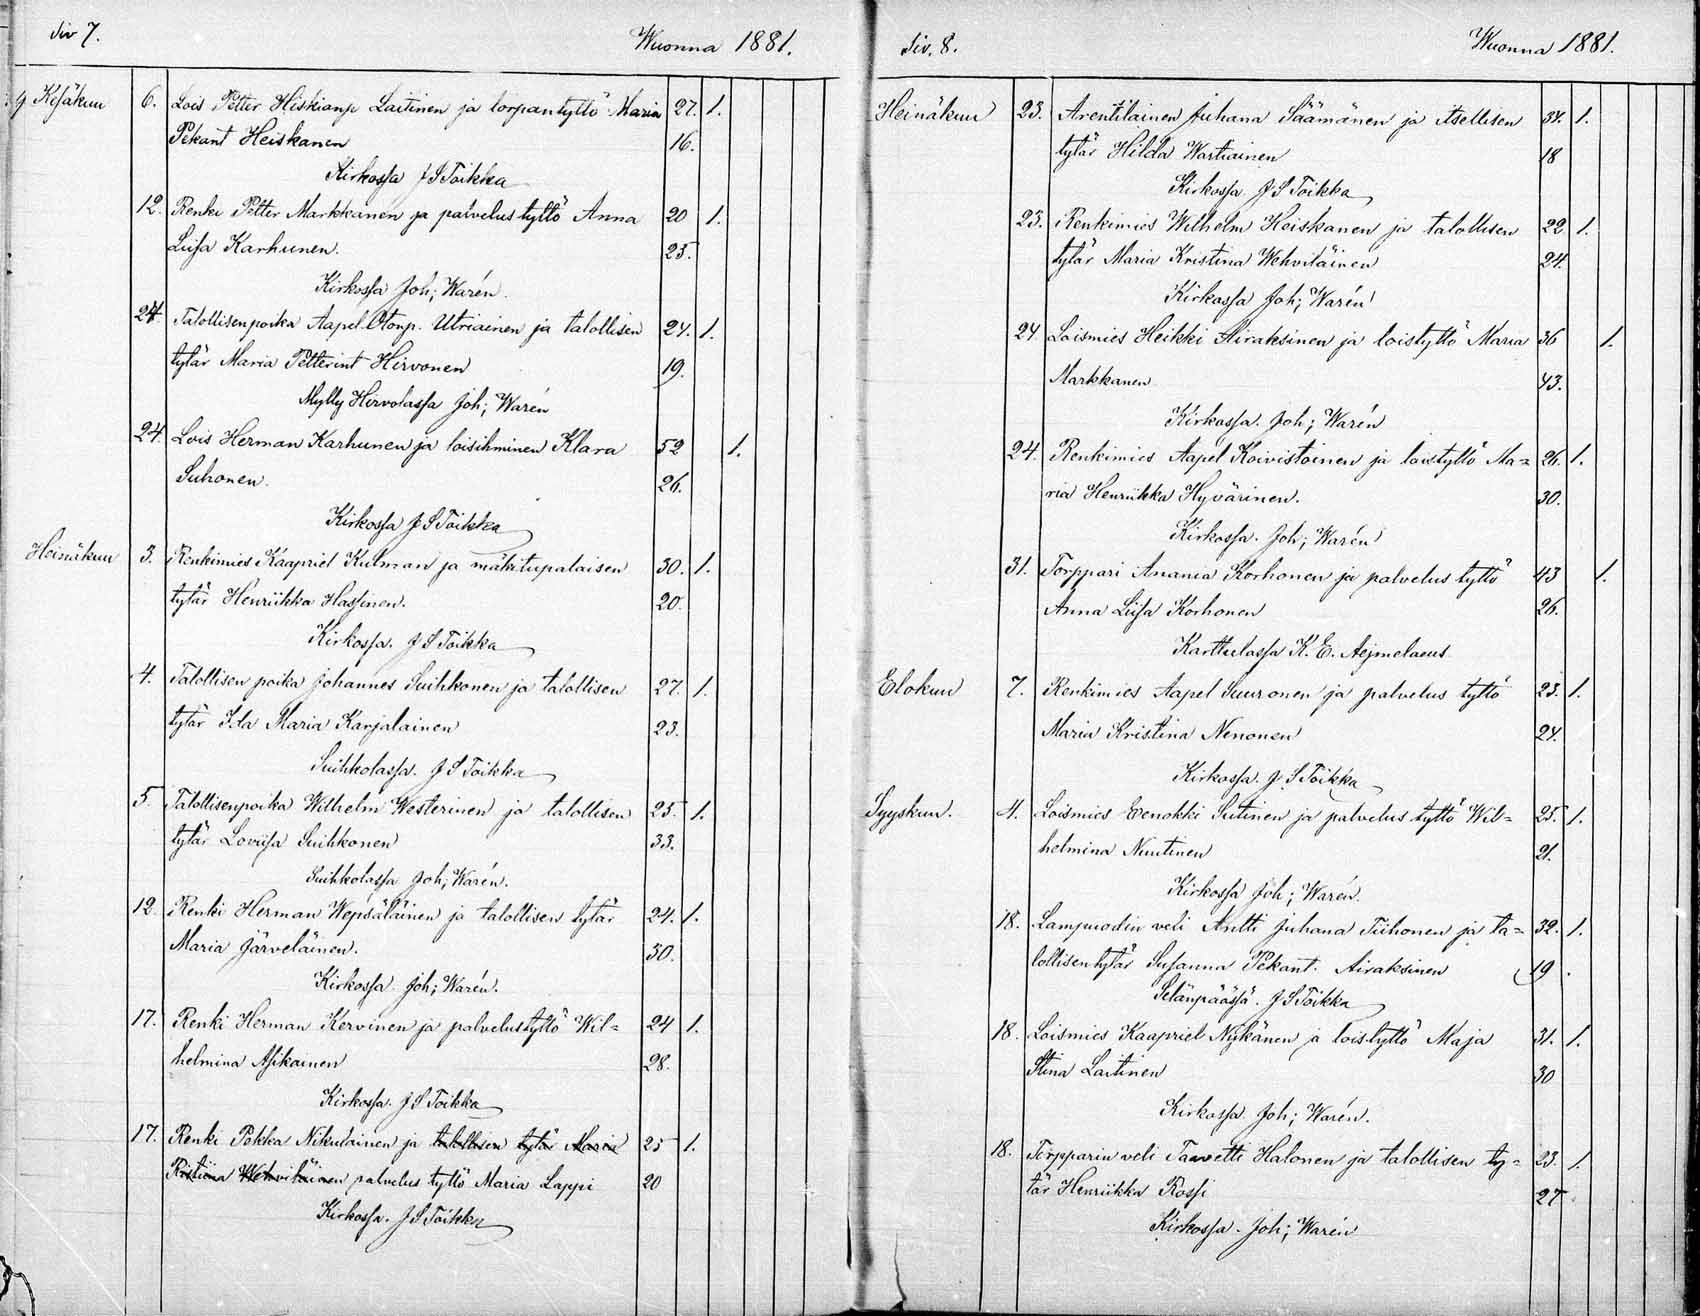 Siv 7.
Wuonna 1881.
Kesäkuu 6. Lois Petter Hiskianp Laitinen ja torpantyttö Maria 27. 1.
Pekant Heiskanen 16.
Kirkossa J S Toikka
12. Renki Petter Markkanen ja palvelustyttö Anna 20 1.
Luisa Karhunen. 25.
Kirkossa Joh; Warén.
24. Talollisenpoika Aapel Otonp. Utriainen ja talollisen 24. 1.
tytär Maria Petterint Hirvonen 19.
Mylly Hirvolassa Joh; Warén
24. Lois Herman Karhunen ja loisihminen Klara 52 1.
Suhonen. 26.
Kirkossa J S Toikka
Heinäkuu 3. Renkimies Kaapriel Kulman ja mäkitupalaisen 30. 1.
tytär Henriikka Hassinen. 20.
Kirkossa. J S Toikka
4. Talollisen poika Johannes Suihkonen ja talollisen 27. 1.
tytär Ida Maria Karjalainen 23.
Suihkolassa. J S Toikka
5. Talollisenpoika Wilhelm Westerinen ja talollisen 25. 1.
tytär Loviisa Suihkonen 33.
Suihkolassa Joh; Warén.
12. Renki Herman Wepsäläinen ja talollisen tytär 24. 1.
Maria Järveläinen. 30.
Kirkossa. Joh; Warén.
17. Renki Herman Kervinen ja palvelustyttö Wil=24 1.
helmina Asikainen 28.
Kirkossa. J S Toikka
17. Renki Pekka Nikulainen ja talollisen tytär Maria 25 1.
Kristiina Wehviläinen palvelus tyttö Maria Lappi 20
Kirkossa. J S Toikka
Siv. 8.
Wuonna 1881.
Heinäkuu 23. Arentilainen Juhana Säämänen ja itsellisen 34. 1.
tytär Hilda Wartiainen 18
Kirkossa J S Toikka
23. Renkimies Wilhelm Heiskanen ja talollisen 22. 1.
tytär Maria Kristina Wehviläinen 24.
Kirkossa Joh; Warén
24. Loismies Heikki Airaksinen ja loistyttö Maria 36 1.
Markkanen 43.
Kirkossa. Joh; Warén
24. Renkimies Aapel Koivistoinen ja loistyttö Ma= 26. 1.
ria Henriikka Hyvärinen. 30.
Kirkossa. Joh; Warén
31. Torppari Anania Korhonen ja palvelus tyttö 43 1.
Anna Liisa Korhonen 26.
Karttulassa K. E. Aejmelaeus
Elokuu 7. Renkimies Aapel Suuronen ja palvelus tyttö 23. 1.
Maria Kristina Nenonen 24.
Kirkossa. J. S Toikka
Syyskuu. 4. Loismies Eenokki Sutinen ja palvelus tyttö Wil= 25. 1.
helmina Nuutinen 21.
Kirkossa Joh; Warén.
18. Lampuodin veli Antti Juhana Tiihonen ja ta= 32. 1.
lollisentytär Susanna Pekant. Airaksinen 19.
Selänpäässä. J S Toikka
18. Loismies Kaapriel Nykänen ja loistyttö Maja 31. 1.
Stina Laitinen 30
Kirkossa Joh; Warén.
18. Torpparin veli Taavetti Halonen ja talollisen ty= 23. 1.
tär Henriikka Rossi 27
Kirkossa. Joh; Warén